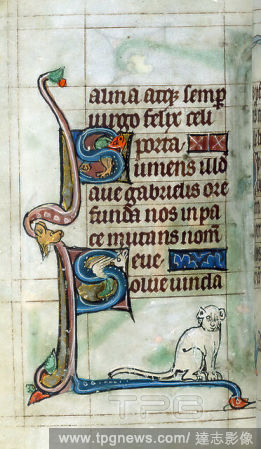 alma atq; semp
uirgo felix celi
porta
Sumens illd
aue gabrielis ore
funda nos in pa
ce mutans nom̄
eue
Solue uincla
TPG
www.tpgnews.com/ 達志影像